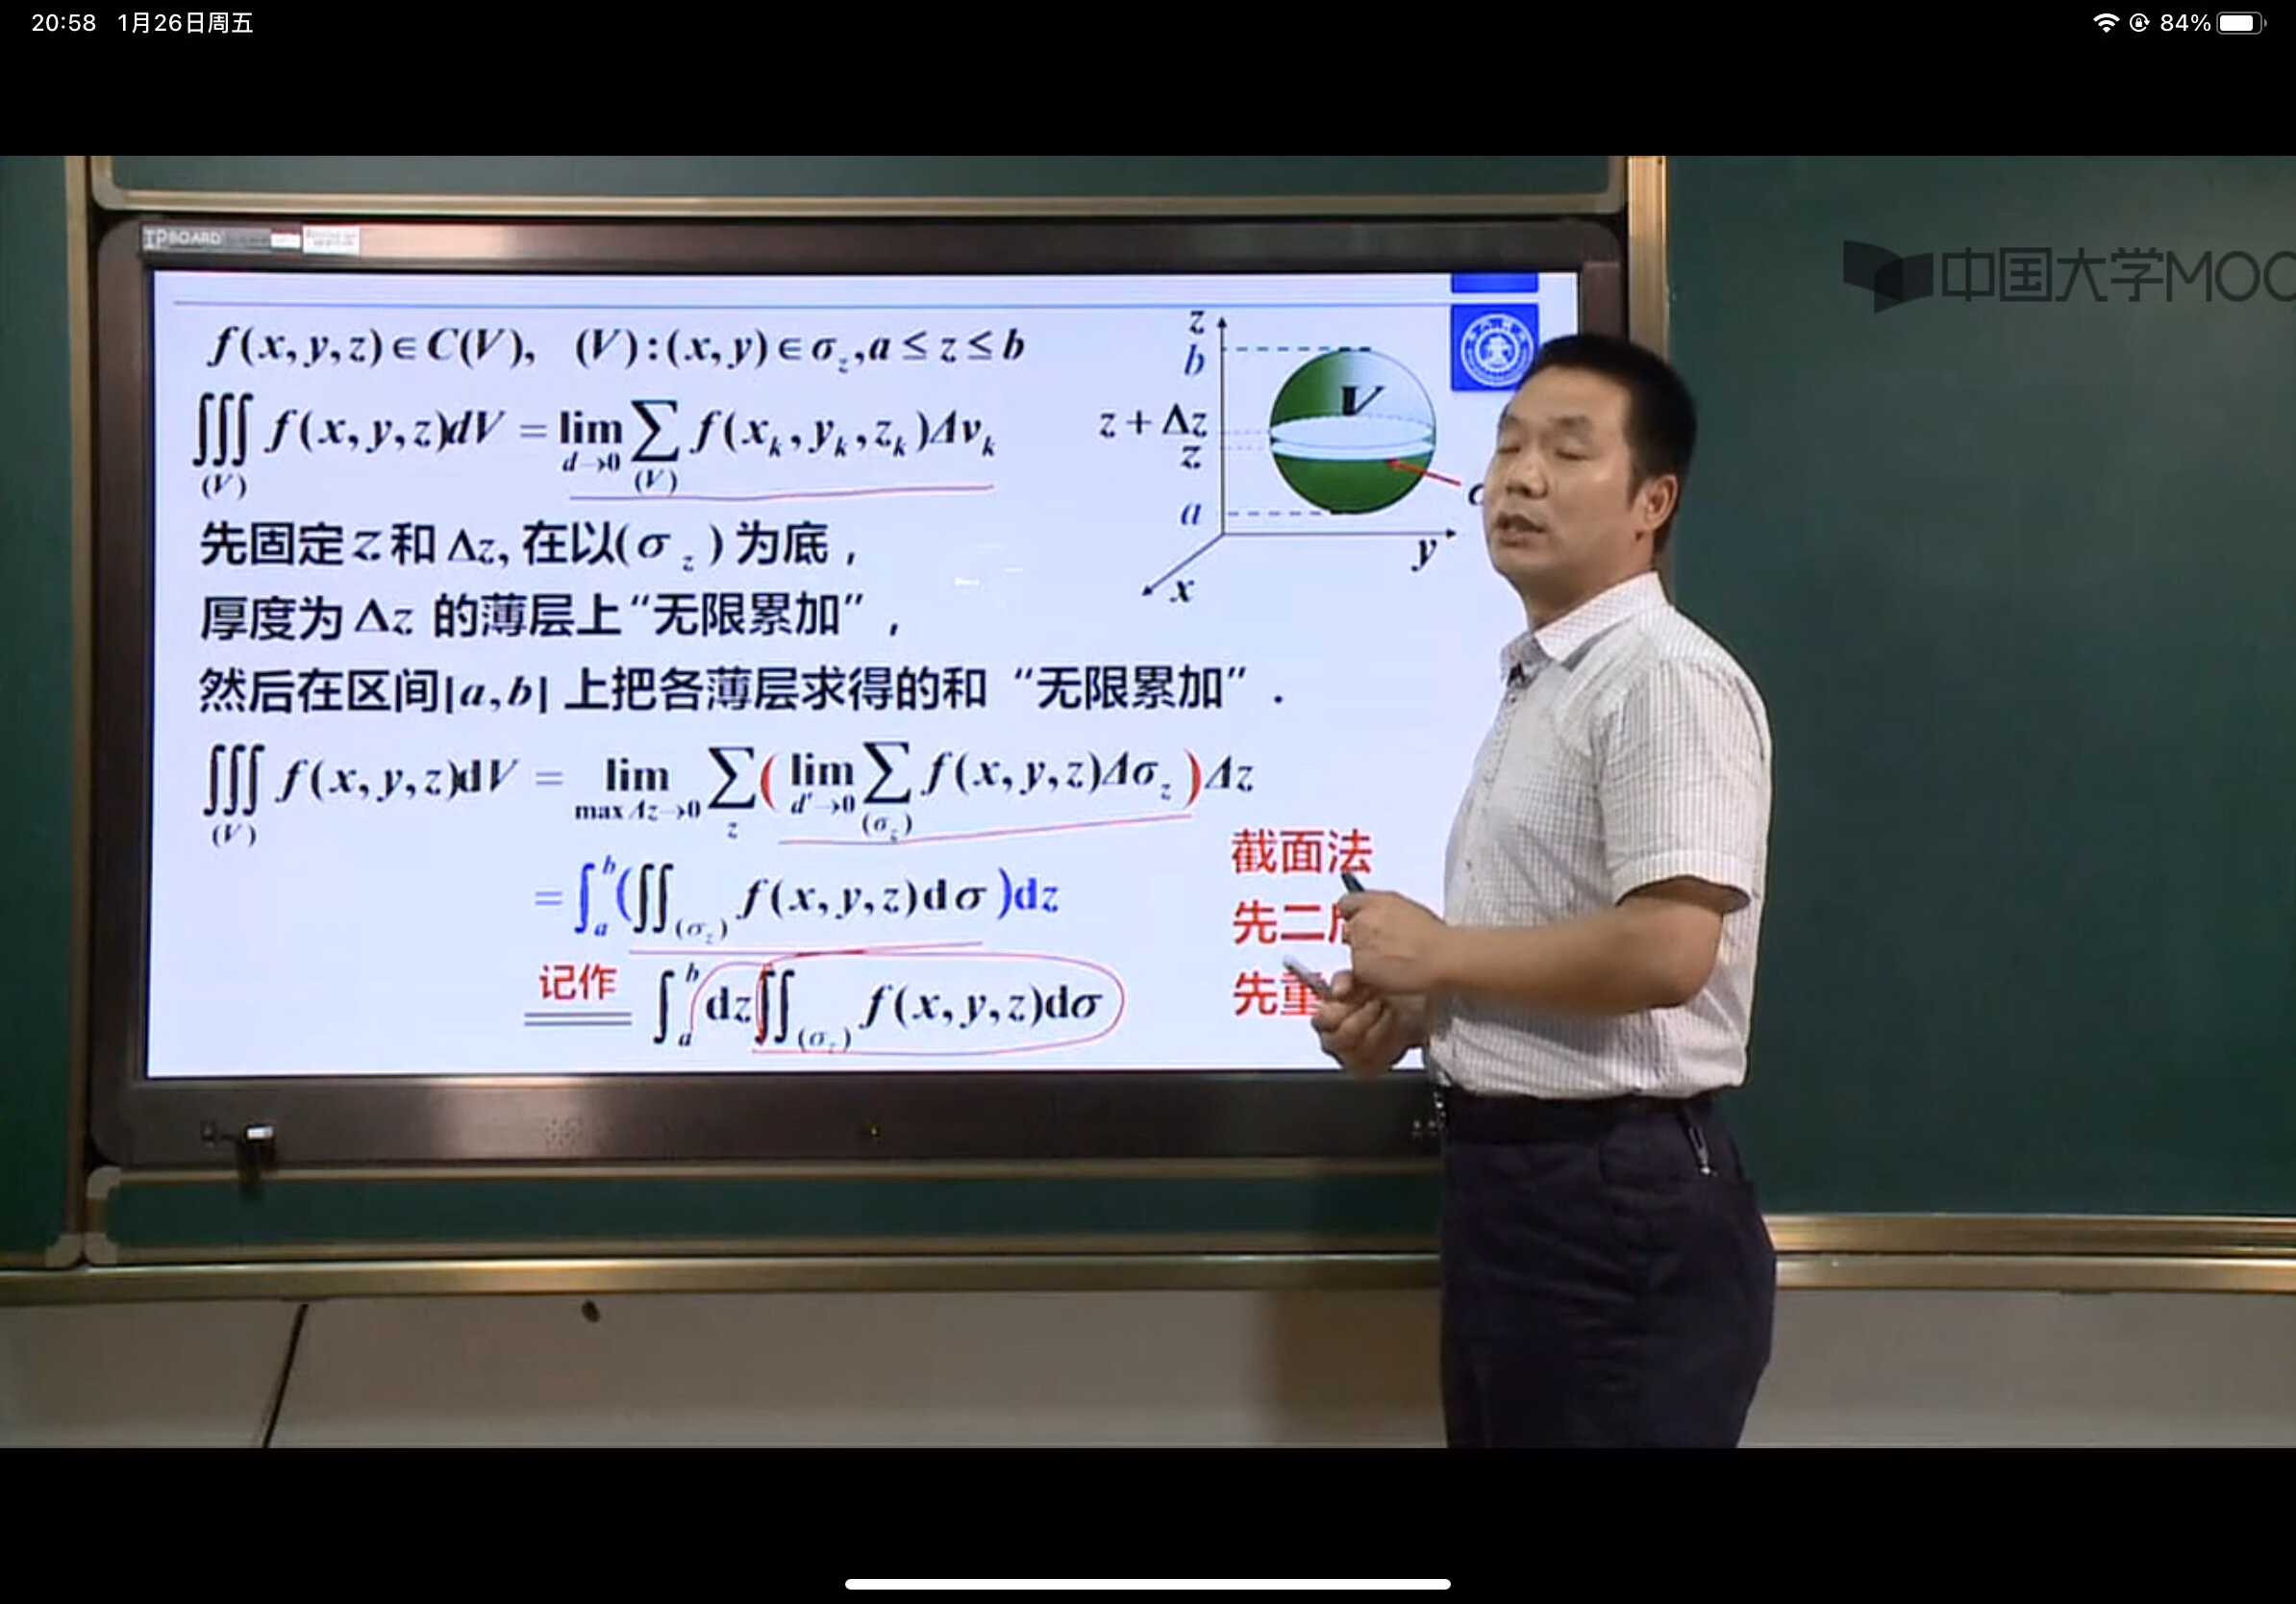 20:58 1月26日周五
84%
TPBOARD
中国大学MOO
f(x,y,z)∈C(V), (V):(x,y)∈σ_z,a≤z≤b
∭_(V) f(x,y,z)dV = lim_{d→0} ∑_(V) f(x_k,y_k,z_k)Δv_k
z
b
z+Δz
z
a
V
y
x
先固定z和Δz,在以(σ_z)为底,
厚度为Δz的薄层上“无限累加”,
然后在区间[a,b]上把各薄层求得的和“无限累加”.
∭_(V) f(x,y,z)dV = lim_{maxΔz→0} ∑_z ( lim_{d'→0} ∑_(σ_z) f(x,y,z)Δσ_z )Δz
=∫_a^b(∬_(σ_z) f(x,y,z)dσ)dz
记作 ∫_a^b dz∬_(σ_z) f(x,y,z)dσ
截面法
先二
先重